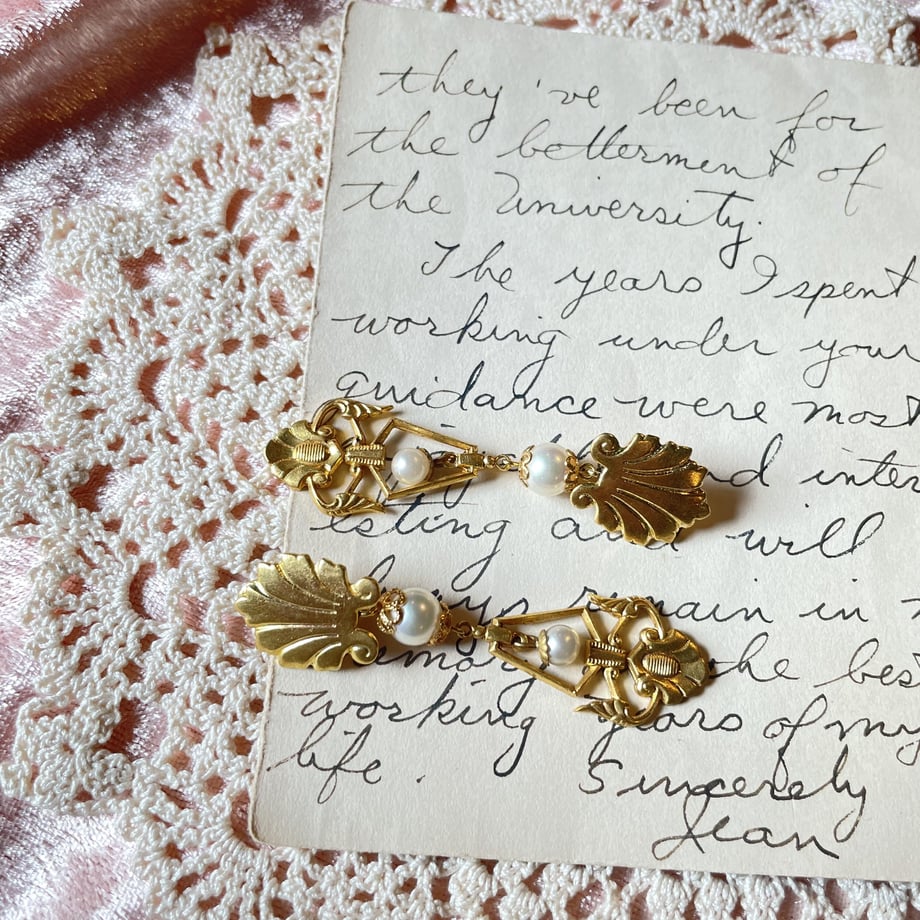 they've been for
the betterment of
the University.
The years I spent
working under your
guidance were most
and inter
esting and will
remain in
the best
working years of my
life.
Sincerely
Jean